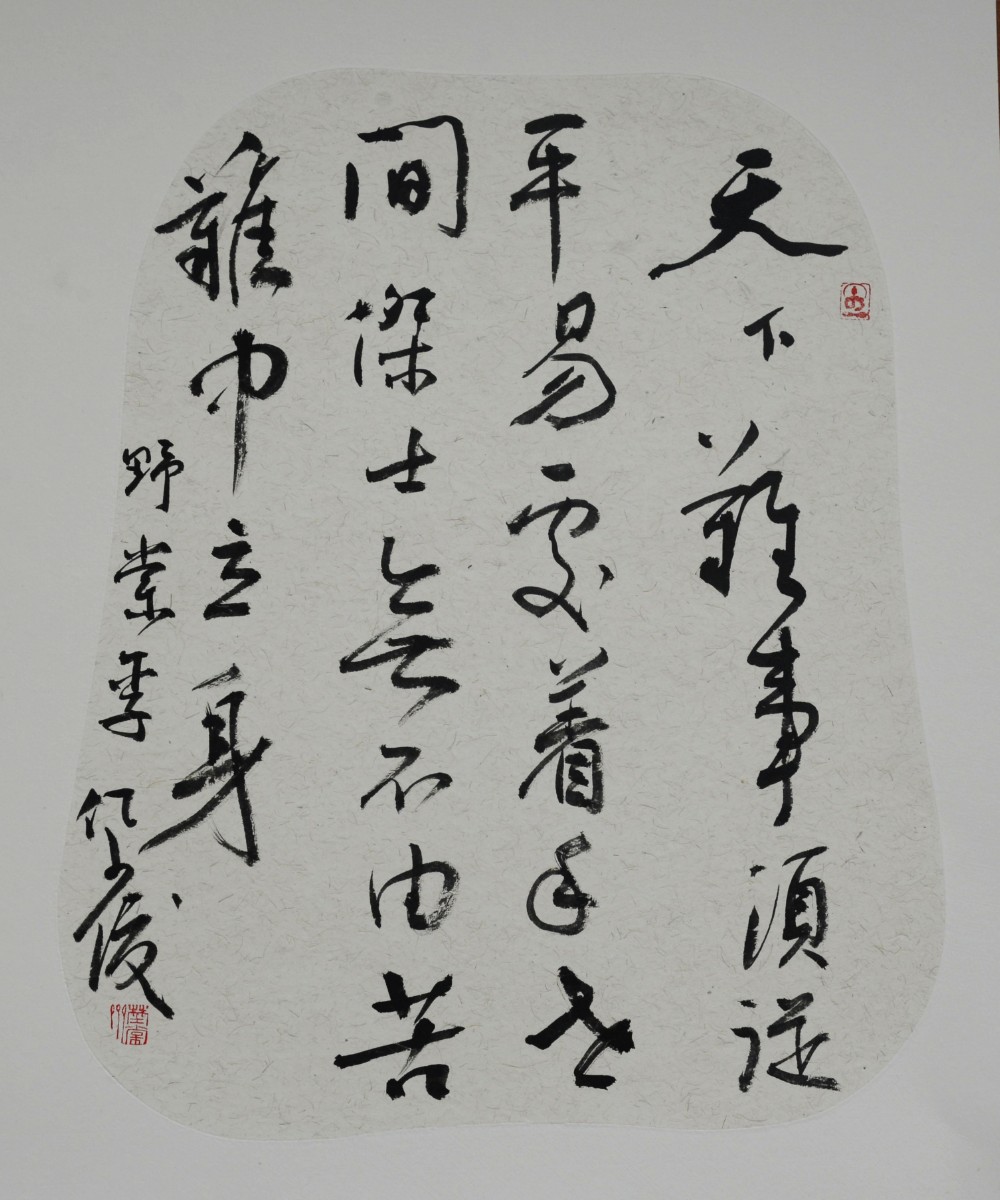 天下難事須從
平易處着手世
間傑士無不由苦
難中立身
野棠季
任少俊